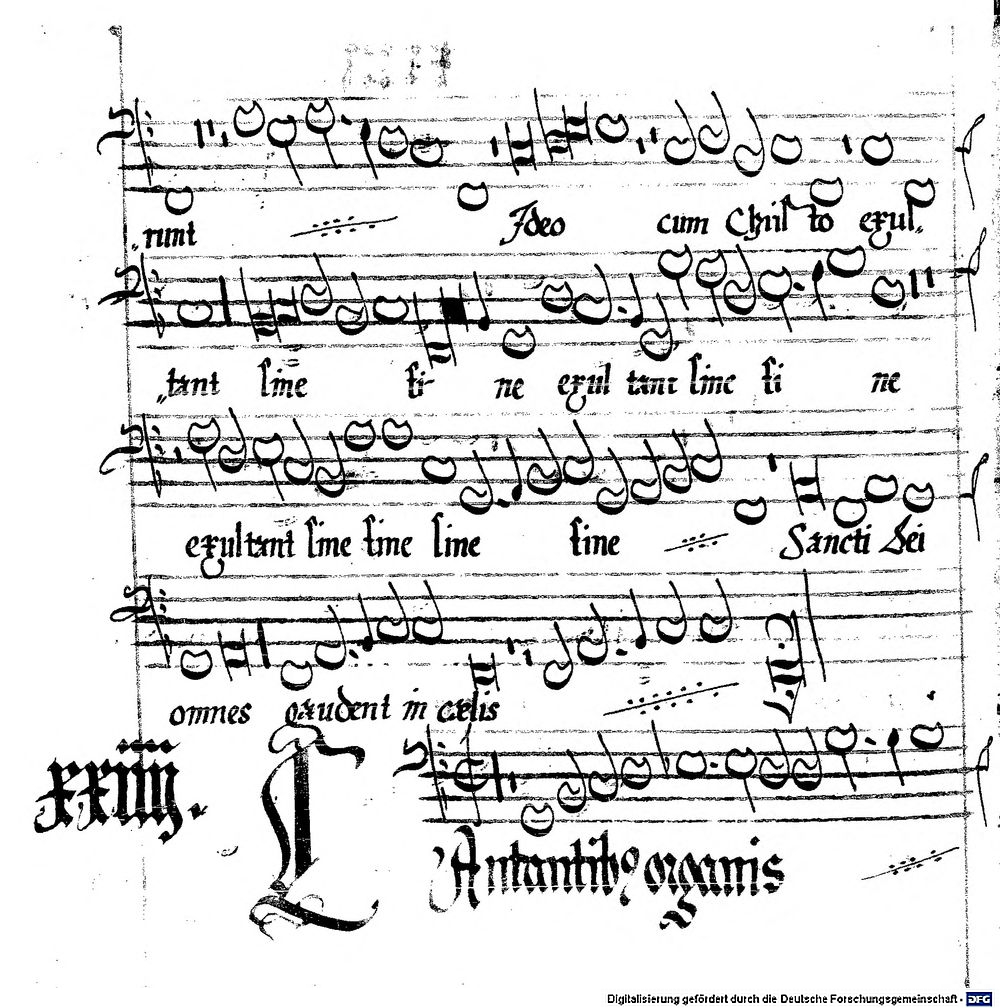 runt Ideo cum Chris to exul
tant sine fi ne exul tant sine fi ne
exultant sine fine sine fine Sancti Dei
omnes gaudent in cælis
xxiiij.
CAntantibꝰ organis
Digitalisierung gefördert durch die Deutsche Forschungsgemeinschaft - DFG